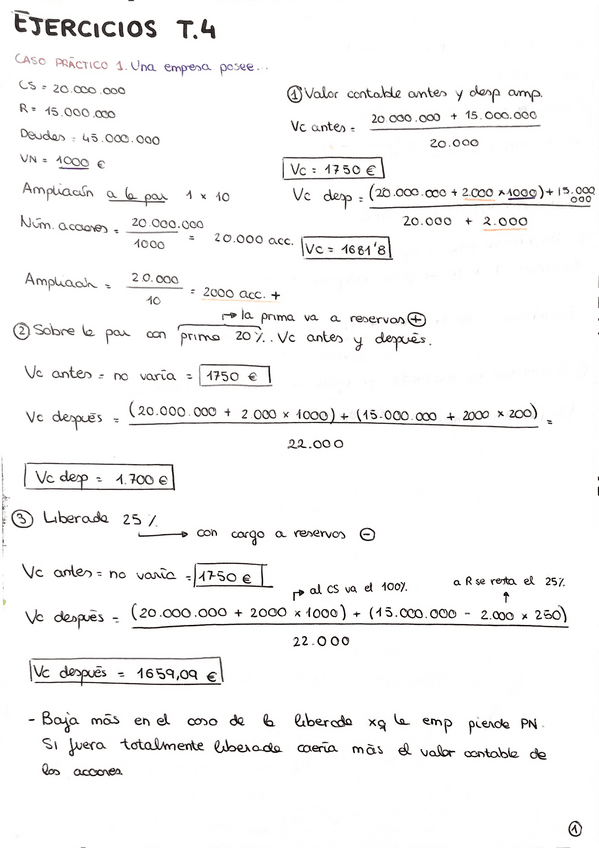 EJERCICIOS T.4
CASO PRÁCTICO 1. Una empresa posee...
CS = 20.000.000
R = 15.000.000
Deudas = 45.000.000
VN = 1000 €
Ampliación a la par 1 x 10
Núm. acciones = 20.000.000 / 1000 = 20.000 acc.
Ampliación = 20.000 / 10 = 2000 acc. +
① Valor contable antes y desp amp.
Vc antes = 20.000.000 + 15.000.000 / 20.000
Vc = 1750 €
Vc desp = (20.000.000 + 2.000 x 1000) + 15.000.000 / 20.000 + 2.000
Vc = 1681'8
↱ la prima va a reservas ⊕
② Sobre la par con prima 20%. Vc antes y después.
Vc antes = no varía = 1750 €
Vc después = (20.000.000 + 2.000 x 1000) + (15.000.000 + 2000 x 200) / 22.000 =
Vc desp = 1.700 €
③ Liberada 25%
→ con cargo a reservas ⊖
Vc antes = no varía = 1750 €
↱ al CS va el 100%
a R se resta el 25%
↑
Vc después = (20.000.000 + 2000 x 1000) + (15.000.000 - 2.000 x 250) / 22.000
Vc después = 1659,09 €
- Baja más en el caso de la liberada xq la emp pierde PN.
Si fuera totalmente liberada caería más el valor contable de
las acciones
①